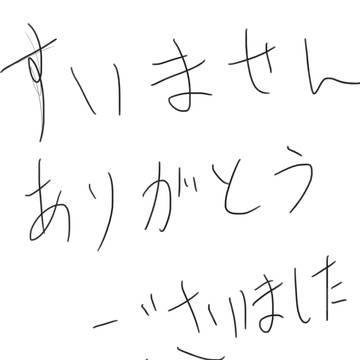 すいません
ありがとう
ございました